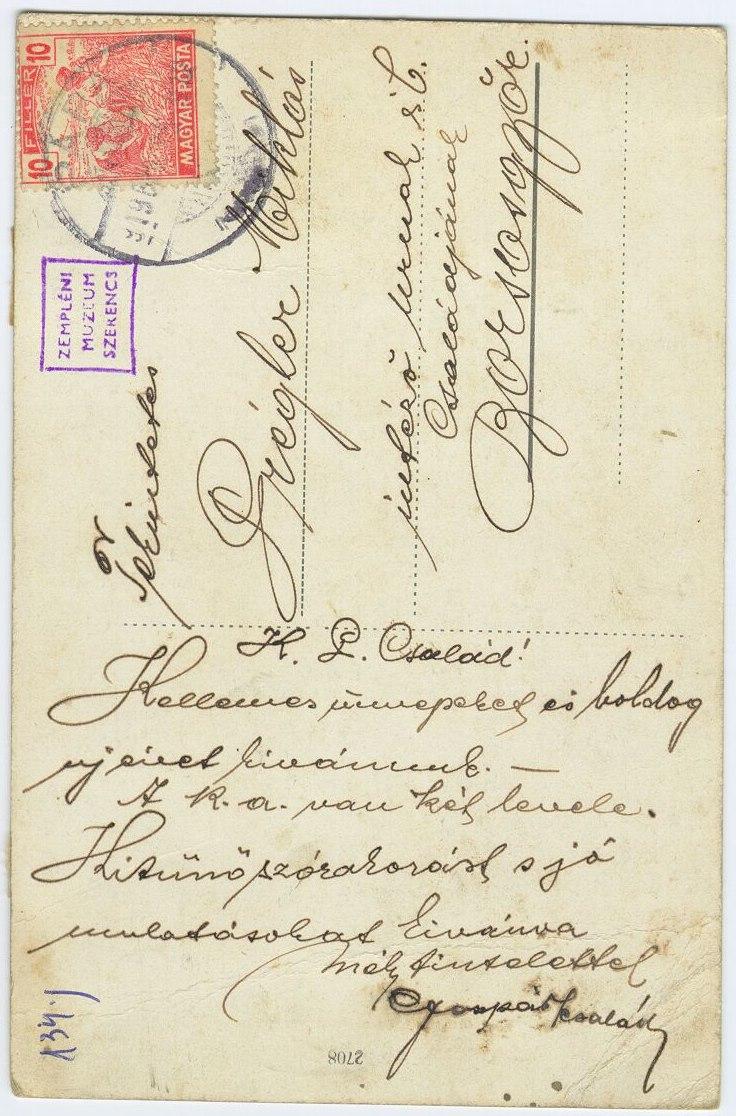 10 FILLÉR 10
MAGYAR POSTA
ZEMPLÉNI
MÚZEUM
SZERENCS
Tekintetes
Drégler Miklós
intéző urnak s b.
Családjának
Borsosgyőr.
K. D. Család!
Kellemes ünnepeket és boldog
uj évet kivánunk. —
A k. a. van két levele.
Kitünő szórakozást s jó
mulatásokat kivánva
mély tisztelettel
Gáspár család
134.
2708